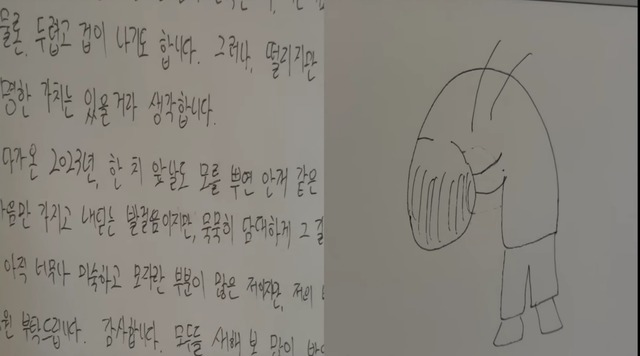 물론, 두렵고 겁이 나기도 합니다. 그러나, 떨리지만
명한 가치는 있을거라 생각합니다.
다가온 2023년, 한 치 앞날도 모를 뿌연 안개 같은
가지고 내딛는 발걸음이지만, 묵묵히 담대하게 그
아직 너무나 미숙하고 모자란 부분이 많은 저이지만, 저의
부탁드립니다. 감사합니다. 모두들 새해 복 많이